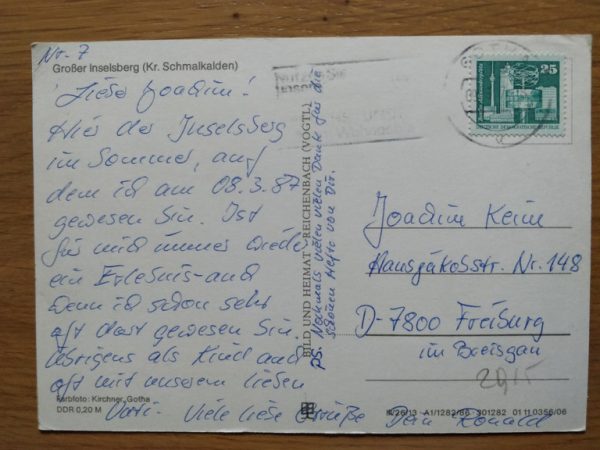 Nr. 7
Großer Inselsberg (Kr. Schmalkalden)
Liebe Joachim!
Hier der Inselsberg
im Sommer, auf
dem ich am 08.3.87
gewesen bin. Ist
für mich immer wieder
ein Erlebnis - auch
wenn ich schon sehr
oft dort gewesen bin.
Übrigens als Kind auch
oft mit unserem lieben
Vati - Viele liebe Grüße Dein Ronald
Farbfoto: Kirchner, Gotha
DDR 0,20 M
BILD UND HEIMAT REICHENBACH (VOGTL)
PS. Nochmals vielen vielen Dank für die
schönen Hefte von Dir.
Nutzen Sie
25
DEUTSCHE DEMOKRATISCHE REPUBLIK
Joachim Keim
Hansjakobstr. Nr. 148
D-7800 Freiburg
im Breisgau
2915
III/26/13 A1/1282/86 301282 01 11 0356/06